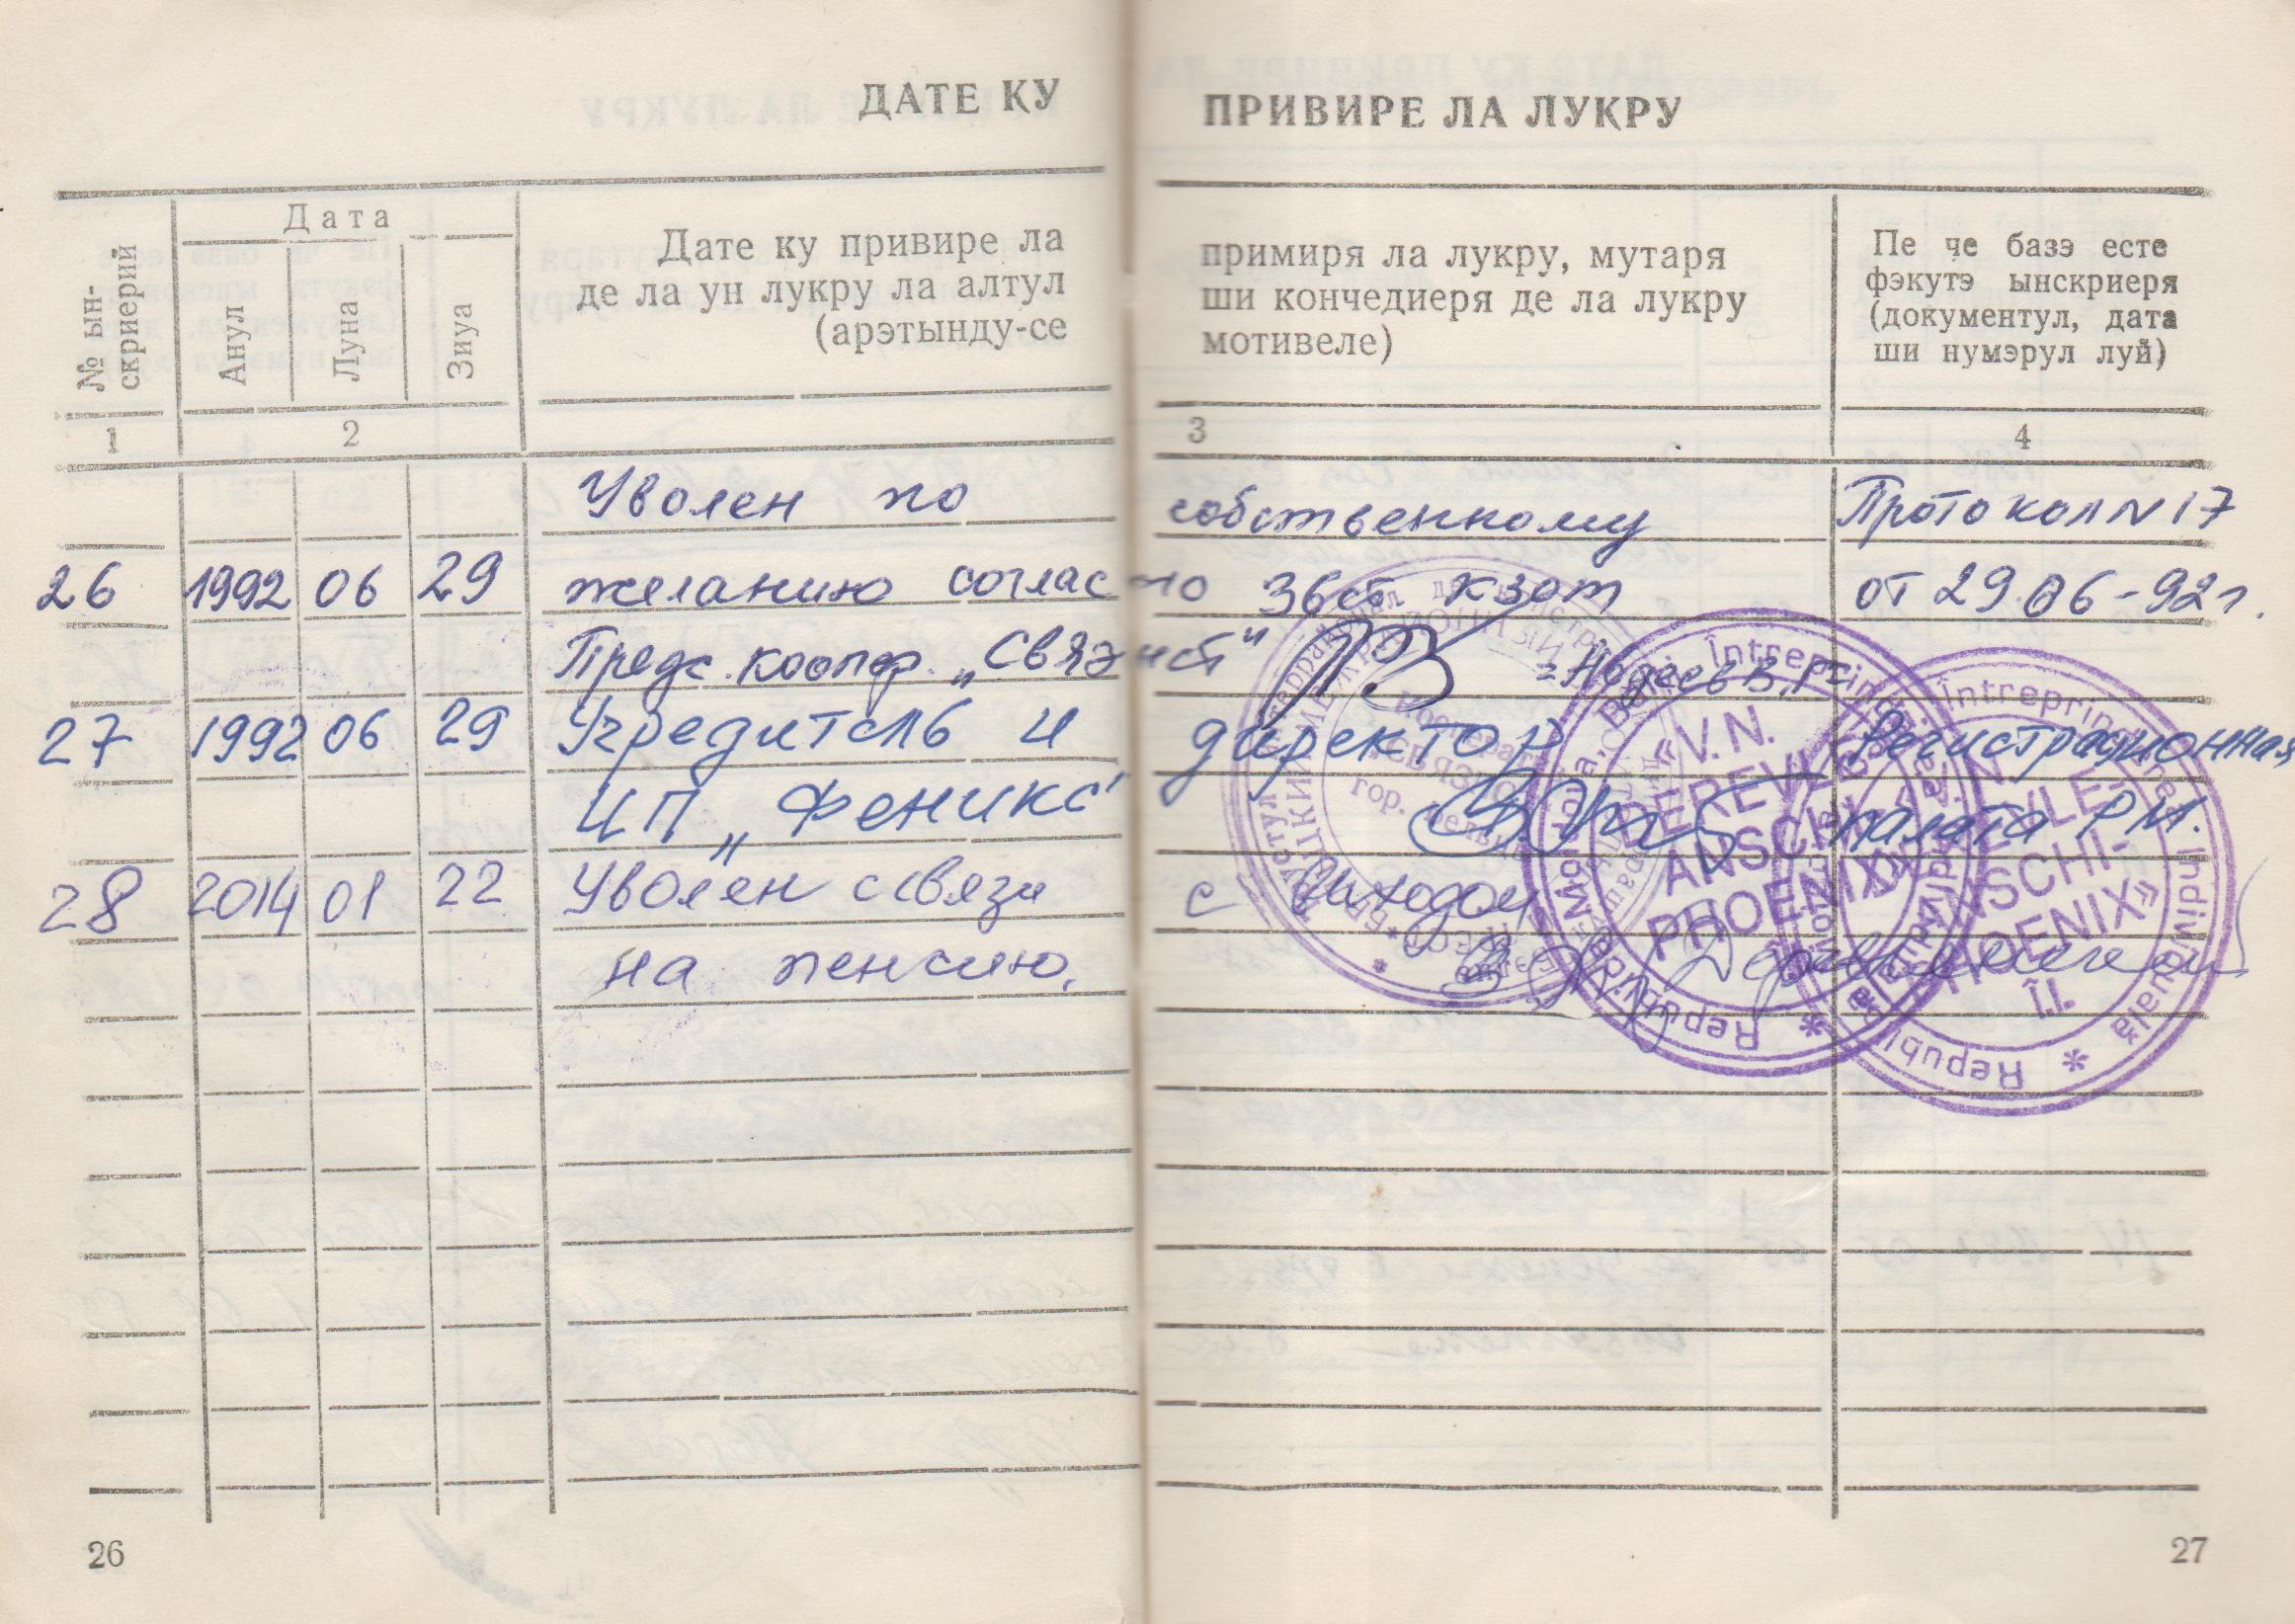 ДАТЕ КУ ПРИВИРЕ ЛА ЛУКРУ
№ ын-
скриерий
Дата
Анул
Луна
Зиуа
Дате ку привире ла примиря ла лукру, мутаря
де ла ун лукру ла алтул ши кончедиеря де ла лукру
(арэтынду-се мотивеле)
Пе че базэ есте
фэкутэ ынскриеря
(документул, дата
ши нумэрул луй)
1 2 3 4
Уволен по собственному Протокол N 17
26 1992 06 29 желанию согласно 36ст. КЗОТ от 29.06-92г.
Предс. коопер. „Связист"
27 1992 06 29 Учредитель и директор Регистрационная
ИП „Феникс" палата Р.М.
28 2014 01 22 Уволен с связи с выходом
на пенсию.
Întreprinderea Individuală
Republica Moldova
«V.N.
DEREVLE-
ANSCHI-
PHOENIX»
Întreprinderea Individuală
Republica
ANSCHI-
PHOENIX»
Î.I.
26
27